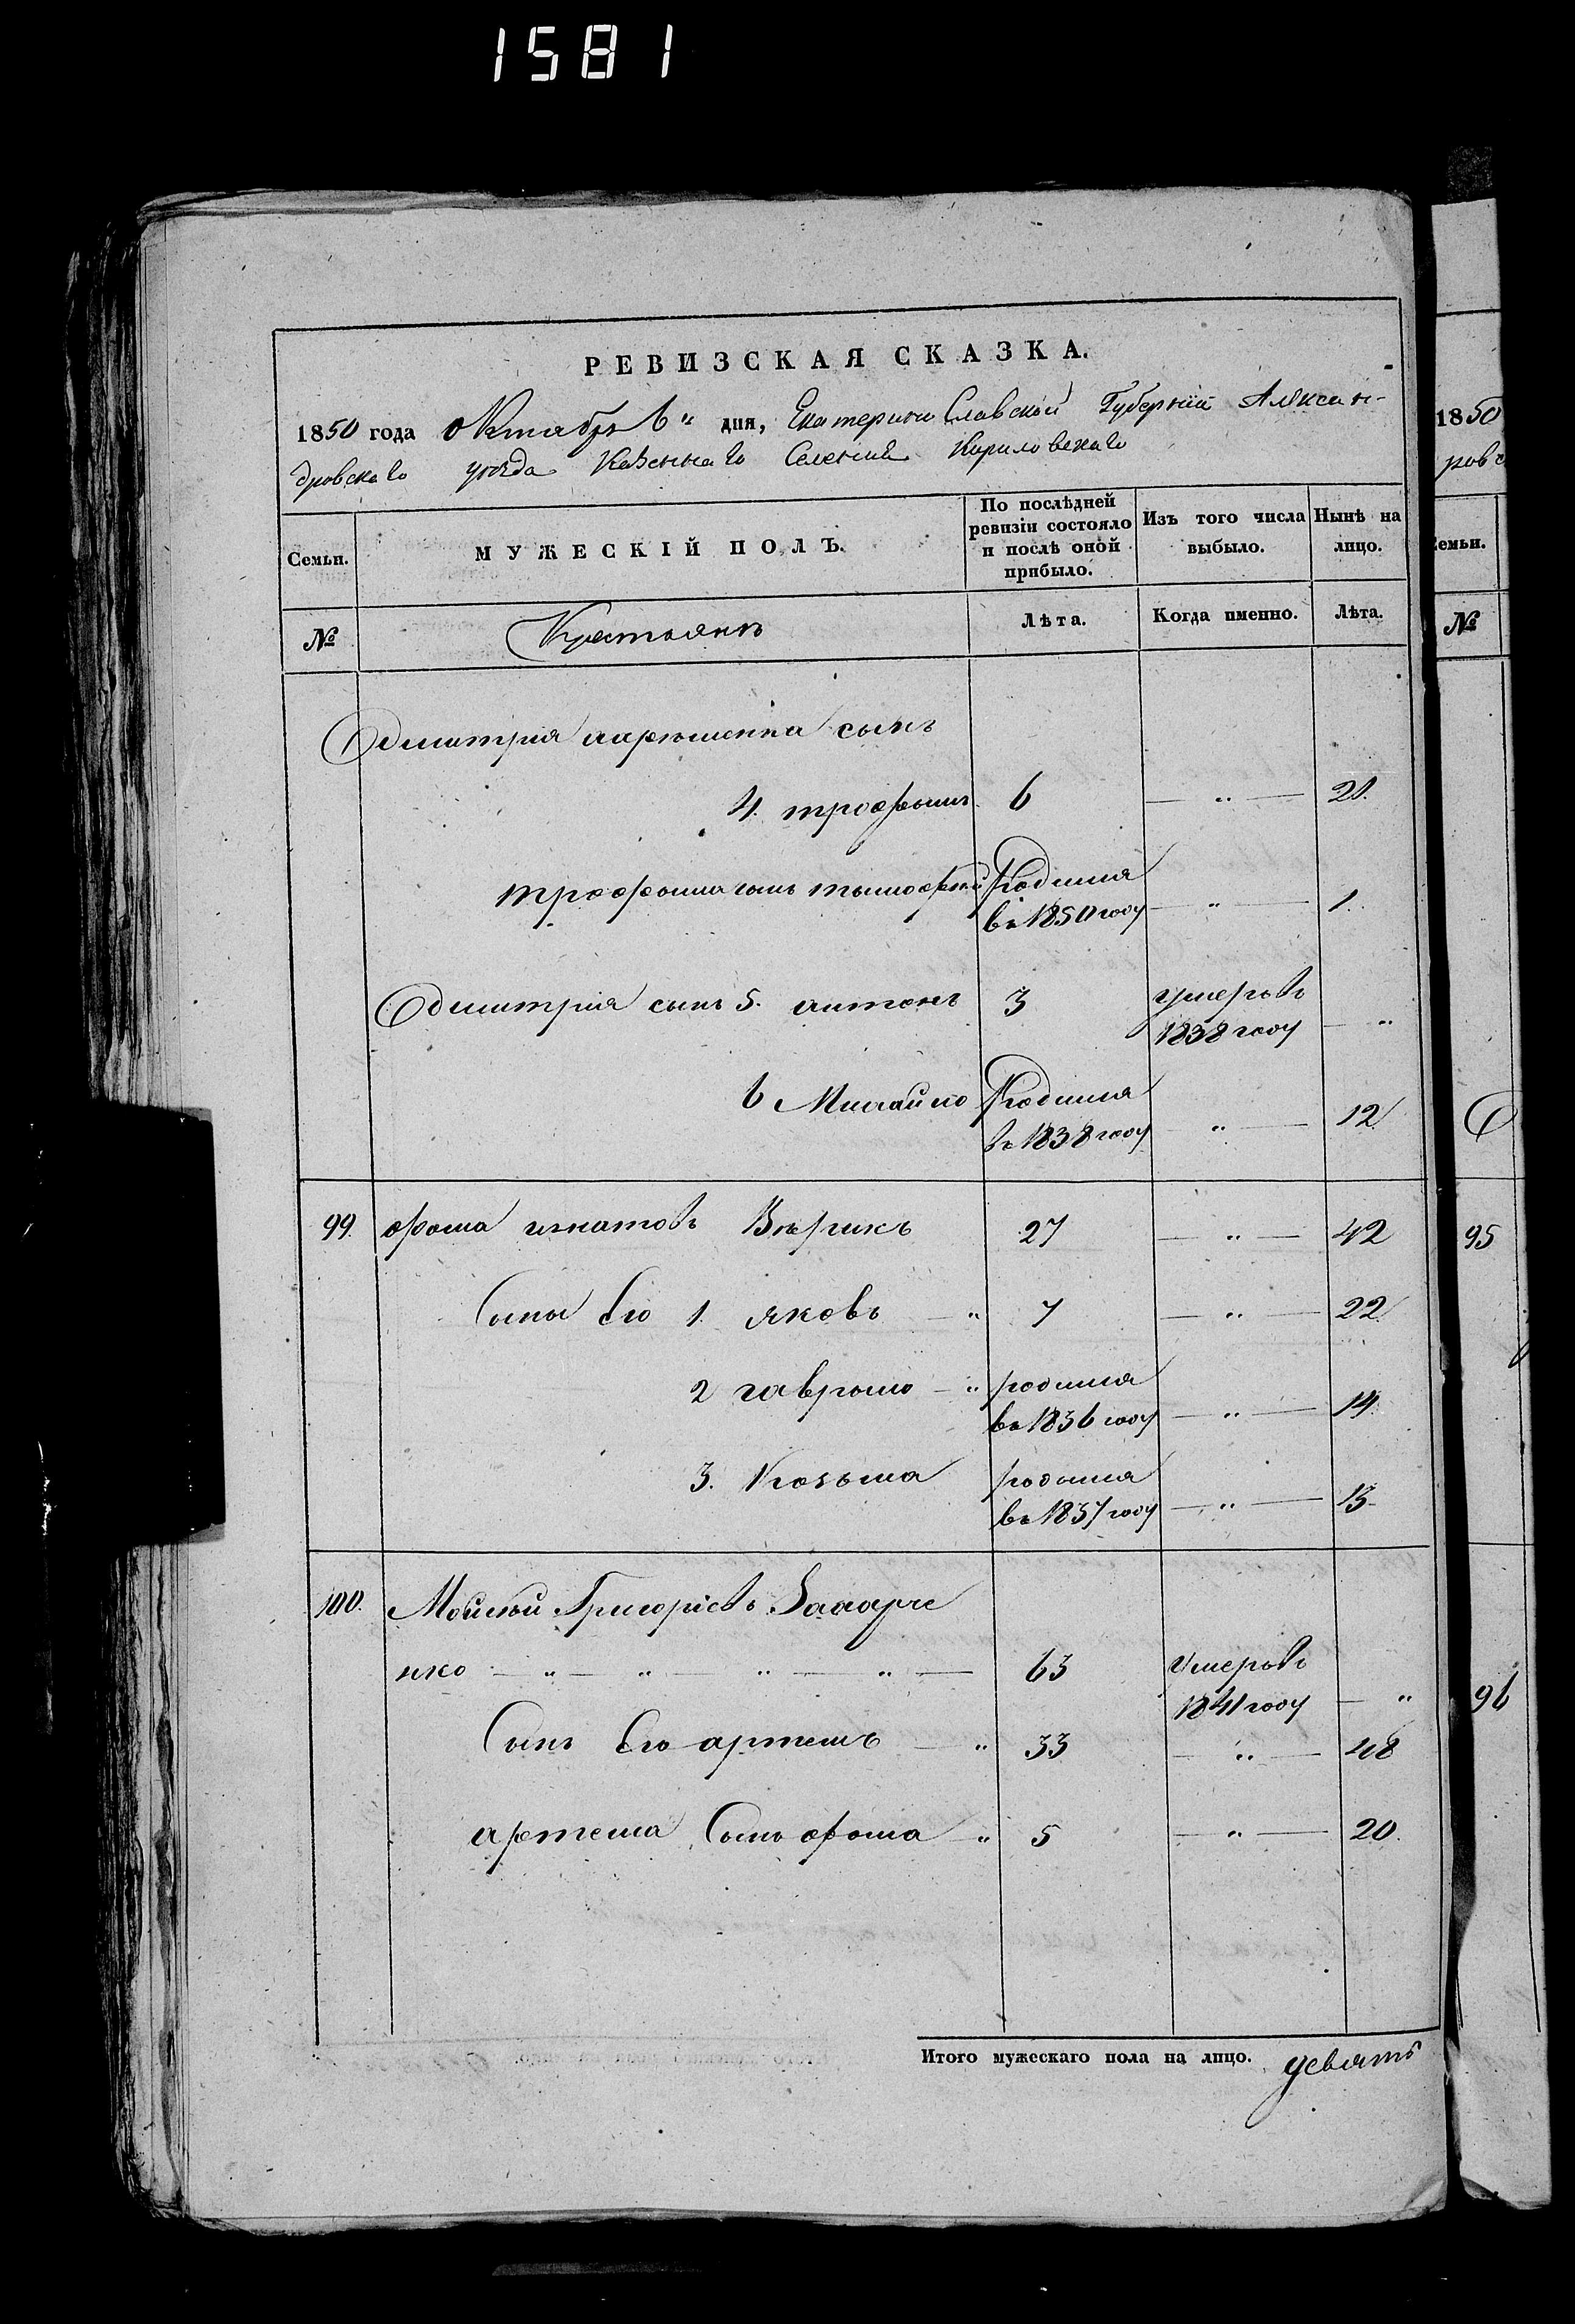 1581
РЕВИЗСКАЯ СКАЗКА.
1850 года октября 6" дня, Екатеринославской Губерніи Алексан-
дровскаго уезда Казеннаго Селенія Кириловскаго
Семьи. МУЖЕСКІЙ ПОЛЪ. По послѣдней ревизіи состояло и послѣ оной прибыло. Изъ того числа выбыло. Нынѣ на лицо.
№ Крестьянъ Лѣта. Когда именно. Лѣта.
Дмитрия сынъ
4. трофымъ 6 — " — 21.
трофыма сынъ тымофей Родился
въ 1850 году — " — 1.
Дмитрия сынъ 5. антонъ 3 умеръ въ
1838 году — "
6 Михайло Родился
въ 1838 году — " — 12.
99. фома игнатовъ 27 — " — 42
Сыны Его 1. яковъ — " 7 — " — 22.
2 гаврыло — " родился
въ 1836 году — " — 14.
3. Козьма родился
въ 1837 году — " — 13
100. Мойсей Григоріевъ Захарче
нко — " — " — " — " — 63 умеръ въ
1841 году — "
Сынъ Его артемъ — " 33 — " — 48
артема Сынъ фома — " 5 — " — 20.
Итого мужескаго пола на лицо. девять
1850
ровс
Семьи.
№
95
96